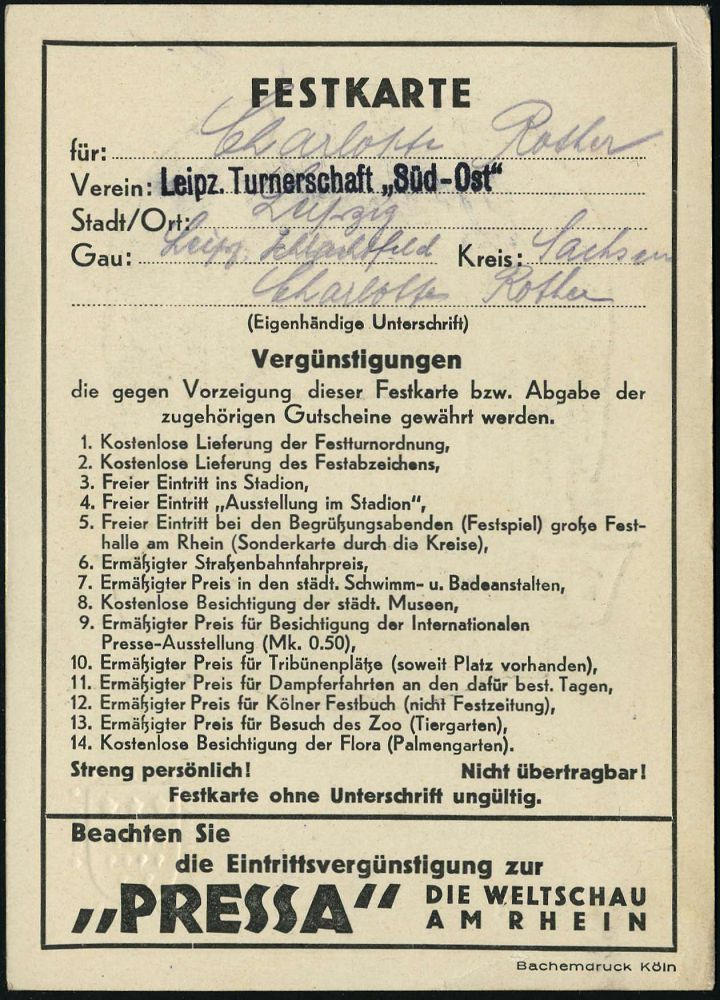 FESTKARTE
für: Charlotte Rother
Verein: Leipz. Turnerschaft „Süd-Ost“
Stadt/Ort: Leipzig
Gau: Leipz. Schlachtfeld Kreis: Sachsen
Charlotte Rother
(Eigenhändige Unterschrift)
Vergünstigungen
die gegen Vorzeigung dieser Festkarte bzw. Abgabe der
zugehörigen Gutscheine gewährt werden.
1. Kostenlose Lieferung der Festturnordnung,
2. Kostenlose Lieferung des Festabzeichens,
3. Freier Eintritt ins Stadion,
4. Freier Eintritt „Ausstellung im Stadion“,
5. Freier Eintritt bei den Begrüßungsabenden (Festspiel) große Fest-
halle am Rhein (Sonderkarte durch die Kreise),
6. Ermäßigter Straßenbahnfahrpreis,
7. Ermäßigter Preis in den städt. Schwimm- u. Badeanstalten,
8. Kostenlose Besichtigung der städt. Museen,
9. Ermäßigter Preis für Besichtigung der Internationalen
Presse-Ausstellung (Mk. 0.50),
10. Ermäßigter Preis für Tribünenplätze (soweit Platz vorhanden),
11. Ermäßigter Preis für Dampferfahrten an den dafür best. Tagen,
12. Ermäßigter Preis für Kölner Festbuch (nicht Festzeitung),
13. Ermäßigter Preis für Besuch des Zoo (Tiergarten),
14. Kostenlose Besichtigung der Flora (Palmengarten).
Streng persönlich! Nicht übertragbar!
Festkarte ohne Unterschrift ungültig.
Beachten Sie
die Eintrittsvergünstigung zur
„PRESSA“ DIE WELTSCHAU
AM RHEIN
Bachemdruck Köln